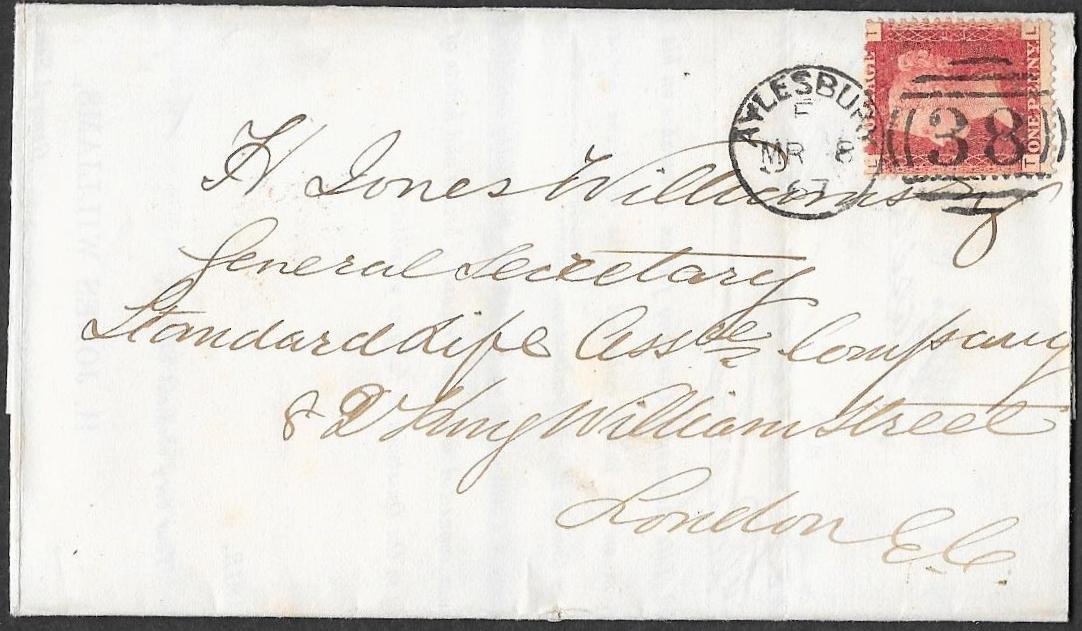 AYLESBURY
E
MR 8
67
38
ONE PENNY
H Jones Williams Esq
General Secretary
Standard Life Assce Company
82 King William Street
London E.C.
H. JONES WILLIAMS,